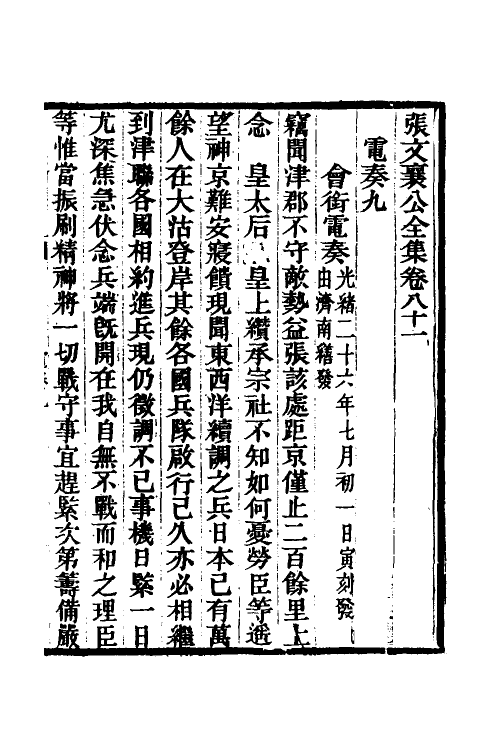 張文襄公全集卷八十一
電奏九
會銜電奏光緒二十六年七月初一日寅刻發
由濟南繕發
竊聞津郡不守敵勢益張該處距京僅止二百餘里上
念　皇太后　皇上纘承宗社不知如何憂勞臣等遙
望神京難安寢饋現聞東西洋續調之兵日本已有萬
餘人在大沽登岸其餘各國兵隊啟行已久亦必相繼
到津聯各國相約進兵現仍徵調不已事機日緊一日
尤深焦急伏念兵端旣開在我自無不戰而和之理臣
等惟當振刷精神將一切戰守事宜趕緊次第籌備嚴